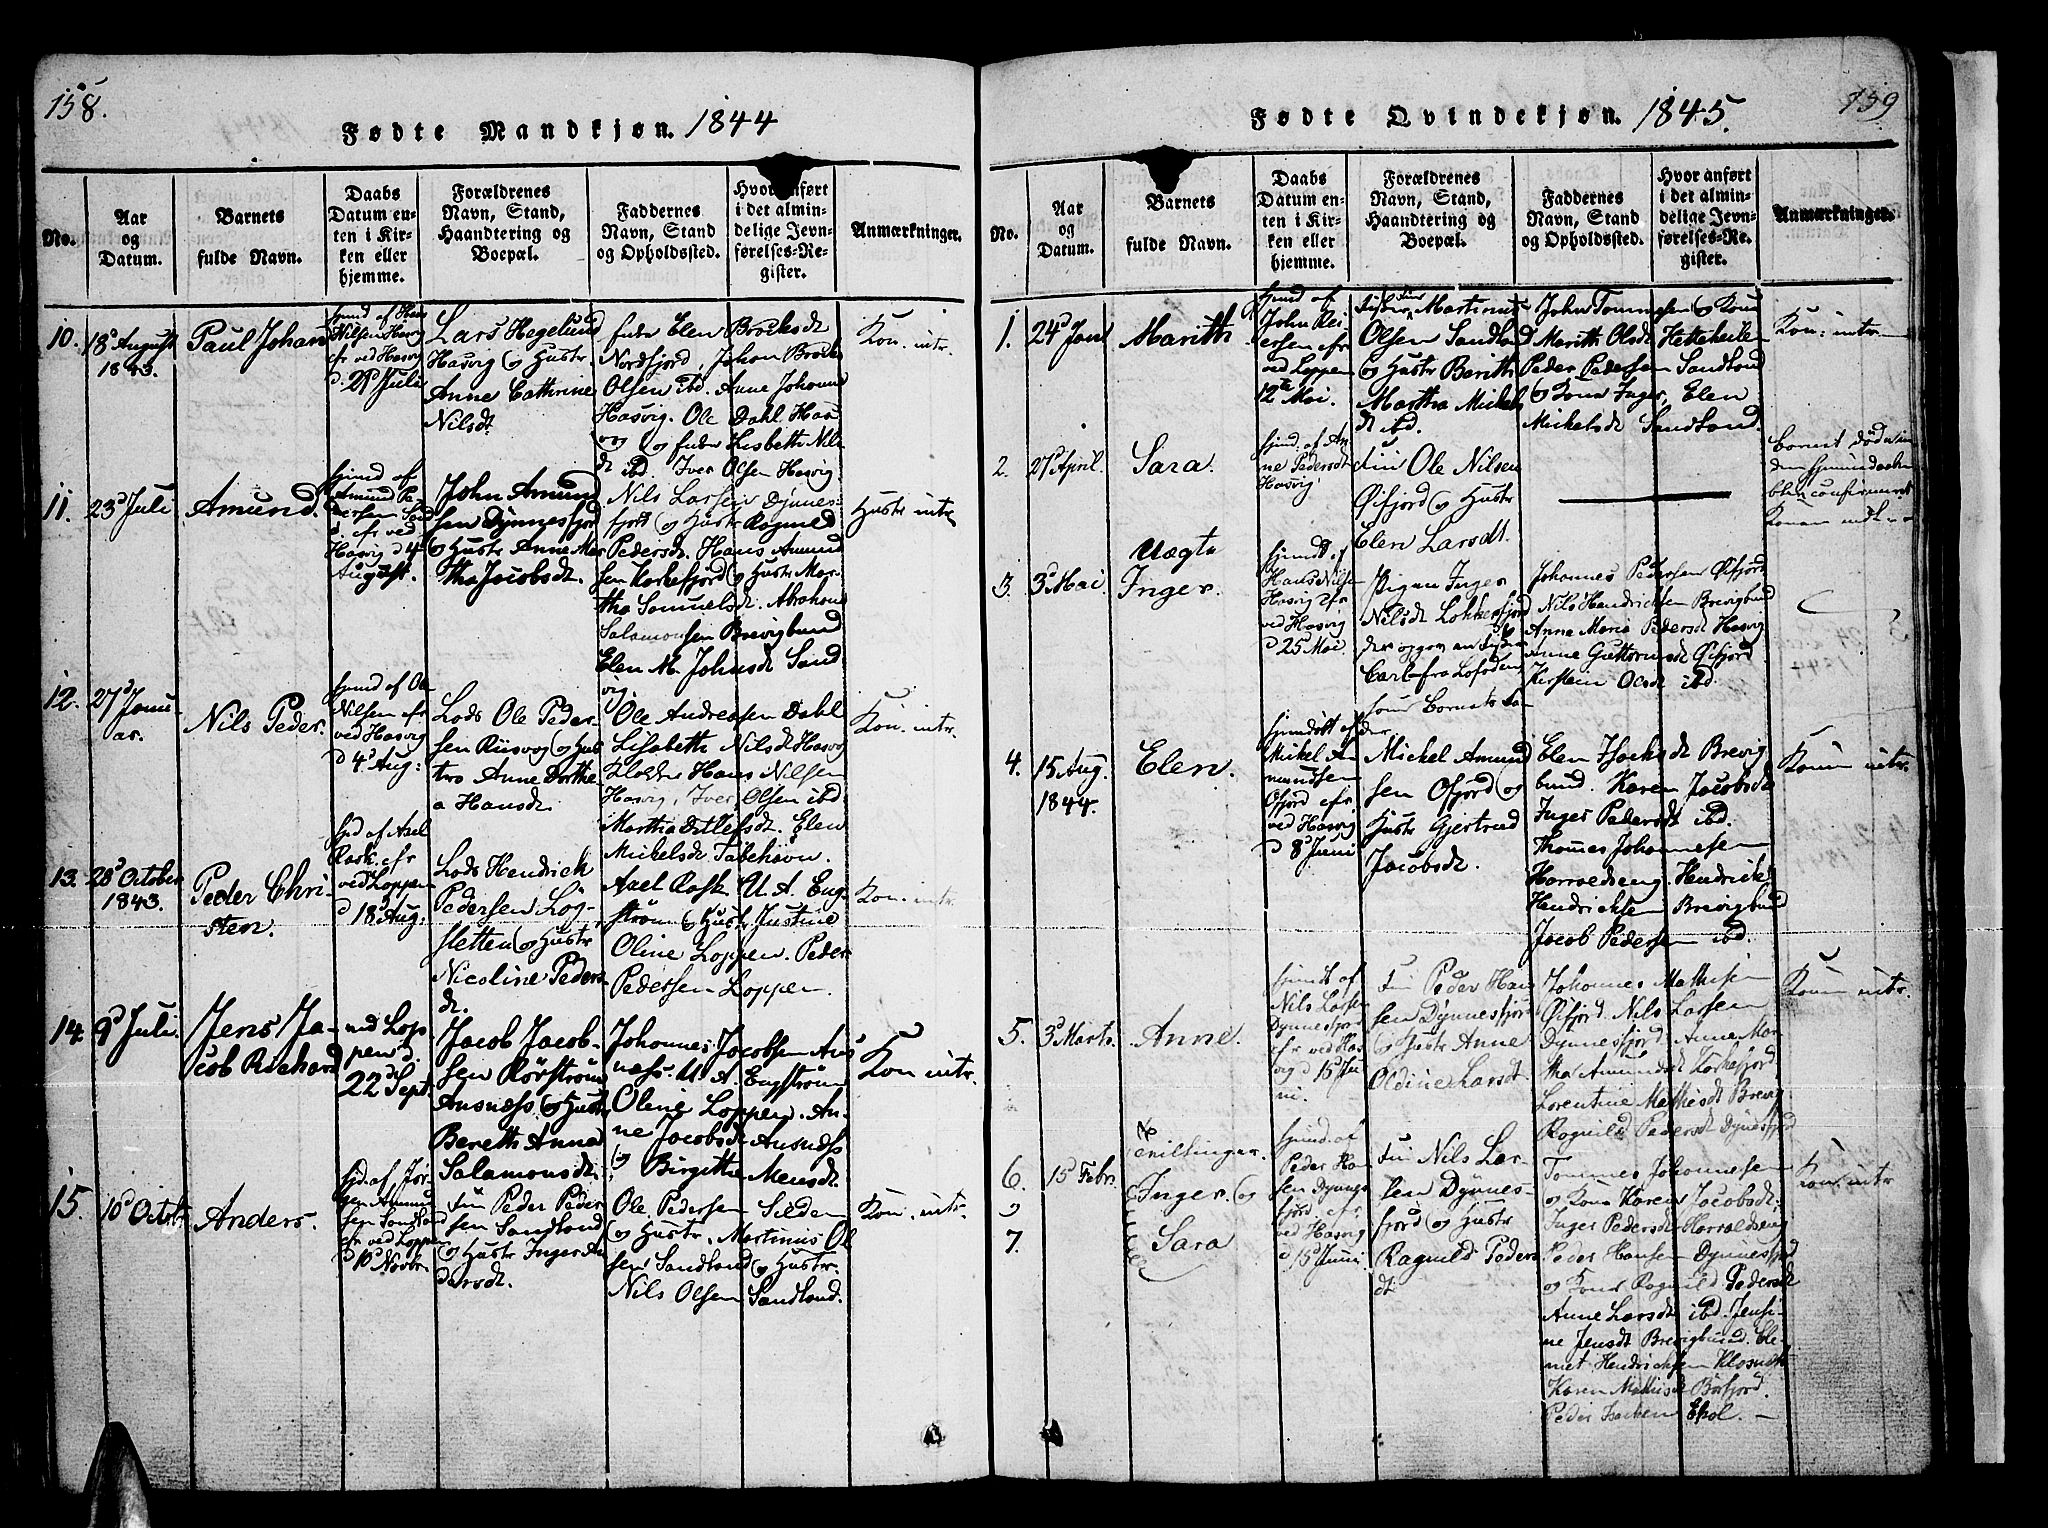 158.
Fødte Mandkjøn. 1844
No.
Aar
og
Datum.
Barnets
fulde Navn.
Daabs
Datum en-
ten i Kir-
ken eller
hjemme.
Forældrenes
Navn, Stand,
Haandtering og
Boepæl.
Faddernes
Navn, Stand
og Opholdssted.
Hvor anført
i det almin-
delige Jevn-
førelses-Re-
gister.
Anmærkninger.
10.
18d August
1843.
Paul Johan
hjemd af Hans
Nilsen Hasvig
cfr ved Hasvig
d. 21d Juli
Lars Hegelund
Hasvig og Hustr
Anne Cathrine
Nilsdt
Elen Brocksdt
Nordfjord Johan Brocks
Olsen ibd. Anne Johanns
Hasvig. Ole Dahl Has
vog og Lisbeth Nils
dt ibd. Iver Olsen Hasvig
Kon. intr.
11.
23d Juli
Amund.
hjemd af
Amund Pe-
dersen Sand
cfr ved
Hasvig d 4de
August.
John Amund
sen Dynnesfjord
og Hustr Anne Mar
tha Jacobsdt.
Nils Larsen Dynnes-
fjord og Hustr Ragnild
Pedersdt. Hans Amund
sen Korkefjord og Hustr Mar-
tha Samuelsdt. Abraham
Salamonsen Brevigbund
Elen M. Johnsdt Sand
vig
Hustr intr
12.
27d Janu-
ar.
Nils Peder.
hjemd af Ole
Nilsen cfr
ved Hasvig
d 4d Aug:
Lods Ole Peder-
sen Riisvog og Hus
tro Anne Dorthe
a Hansdt.
Ole Andreasen Dahl
Lisabeth Nilsdt Hasvog
Hans Nilsen
Hasvig, Iver Olsen ibd
Martha Ditlefsdt. Elen
Mickelsdt
Kon. intr.
13.
28d October
1843.
Peder Chri-
sten.
hjd af Axel
Rask. cfr
ved Loppen
d 18d Aug:
Lods Hendrick
Pedersen Lög-
sletten og Hustr
Nicoline Peders
dt.
Axel Rask U. A. Eng-
strøm og Hustr Justine
Oline Loppen. Peder
Pedersen Loppen.
Kon. intr
14.
9d Juli.
Jens Ja-
cob Richard
ved Lop
pen d.
22nd Sept.
Jacob Jacob-
sen Rörström
Ausnæss og Hustr
Bereth Anna
Salamonsdt.
Johannes Jacobsen Aus
næss. U. A. Engström
Oline Loppen. An-
ne Jacobsdt Ausnæss
og Birgitte Mensdt.
Kon intr.
15.
10d Octobr
Anders.
hjd. af Jör-
gen Amund
sen Sandland
cfr ved Loppen
d 10d Novbr.
Fin Peder Peder
sen Sandland
og Hustr Inger An
dersdt.
Ole Pedersen Silden
og Hustr. Martinus Ol
sen Sandland og Hustr.
Nils Olsen Sandland.
Kon. intr.
159
Fødte Qvindekjøn. 1845.
No.
Aar
og
Datum.
Barnets
fulde Navn.
Daabs
Datum en-
ten i Kir-
ken eller
hjemme.
Forældrenes
Navn, Stand,
Haandtering og
Boepæl.
Faddernes
Navn, Stand
og Opholdssted.
Hvor anført
i det almin-
delige Jevn-
førelses-Re-
gister.
Anmærkninger.
1.
24d Jan
Marith
hjemd af
John Rei
ersen cfr
ved Loppen
12te Mai.
Martinus
Olsen Sandland
og Hustr Berith
Martha Mickels
dt ibd.
John Tommesen og Kone
Marith Olsdt
Peder Pedersen Sandland
og Kone Inger, Elen
Mickelsdt Sandland.
Kon: intr.
2.
27d April.
Sara.
hjemd. af An-
ne Pedersdt
Hasvig
Fin Ole Nilsen
Öifjord og Hustr
Elen Larsdt.
barnet död
Konen indt
3.
3d Mai
Uægte
Inger.
hjemdt af
Hans Nilsen
Hasvig cfr
ved Hasvig
d 25 Mai
Pigen Inger
Nilsdt Lokkerfjord
der opgav en
Carl fra Lofoden
som Barnets Fa-
der
Johannes Pedersen Öifjord
Nils Hendricksen Brevigbund
Anne Maria Pedersdt Hasvig
Anne Guttormsdt Öifjord
Kirsten Olsdt ibd.
4.
15 Aug.
1844.
Elen.
hjemdöbt af
Mickel A-
mundsen
Öfjord cfr
ved Hasvig
d 8d Juni
Mickel Amund
sen Öfjord og
Hustr Gjertrud
Jacobsdt.
Elen Isacksdt Brevig
bund. Karen Jacobsdt
Inger Pedersdt ibd.
Thomes Johannesen
Harraldseng. Hendrick
Hendricksen Brevigbund
Jacob Pedersen ibd.
Konen intr.
5.
3d Marts.
Anne.
hjemdt af
Nils Larsen
Dynnesfjord
cfr ved Has
vig d 15d Ju
ni.
Fin Peder Han
sen Dynnesfjord
og Hustr Anne
Oldine Larsdt.
Johannes Mathisen
Öifjord. Nils Larsen
Dynnesfjord. Anne Mar
tha Amundsdt Korkefjord.
Lorentine Mathisdt Brevig
Ragnild Pedersdt Dynesfjord
Konen intr.
6.
og
7.
15d Febr.
Tvillinger.
Inger. og
Sara
hjemd. af
Peder Han
sen Dynnes
fjord. cfr.
ved Hasvig
d 15d Juni
Fin Nils Lar-
sen Dynnes-
fjord og Hustr
Ragnild Peders
dt.
Tommes Johannesen
og Kone Karen Jacobsdt.
Inger Pedersdt Harraldseng
Peder Hansen Dynnesfjord
og Kone Ragnild Pedersdt
Anne Larsdt ibd. Jensi-
ne Jensdt Brevigbund. Cle-
met Hendricksen
Karen Mathisdt Börfjord.
Peder Isacksen
Konen intr